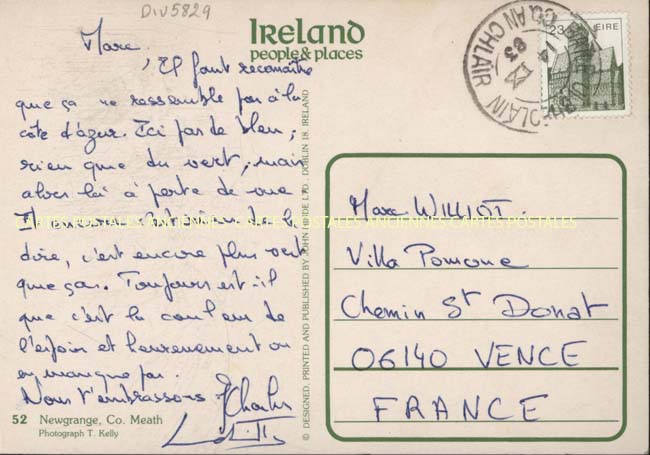 DIV5829
Ireland
people & places
Marc,
Il faut reconnaître
que ça ne ressemble pas à la
côte d'azur. Ici pas de bleu,
rien que du vert, mais
alors là à perte de vue
Et encore
dire, c'est encore plus vert
que ça. Toujours est-il
que c'est la couleur de
l'espoir et heureusement on
en manque pas.
Nous t'embrassons
Charles
52 Newgrange, Co. Meath
Photograph T. Kelly
© DESIGNED, PRINTED AND PUBLISHED BY JOHN HINDE LTD., DUBLIN 18, IRELAND
23
ÉIRE
CO AN CHLAIR
14
83
Marc WILLIOT.
Villa Pomone
Chemin St Donat
06140 VENCE
FRANCE
CARTES POSTALES ANCIENNES CARTES POSTALES ANCIENNES CARTES POSTALES